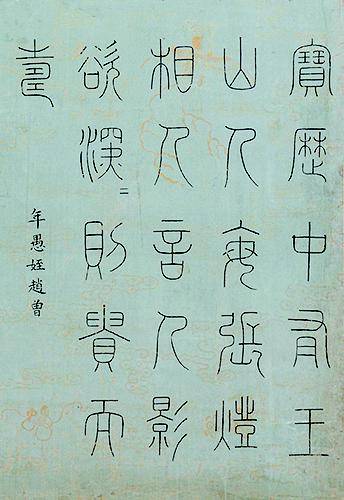 寶歷中有王
山人每張燈
相人言人影
欲深〻則貴而
壽
年愚姪趙曾